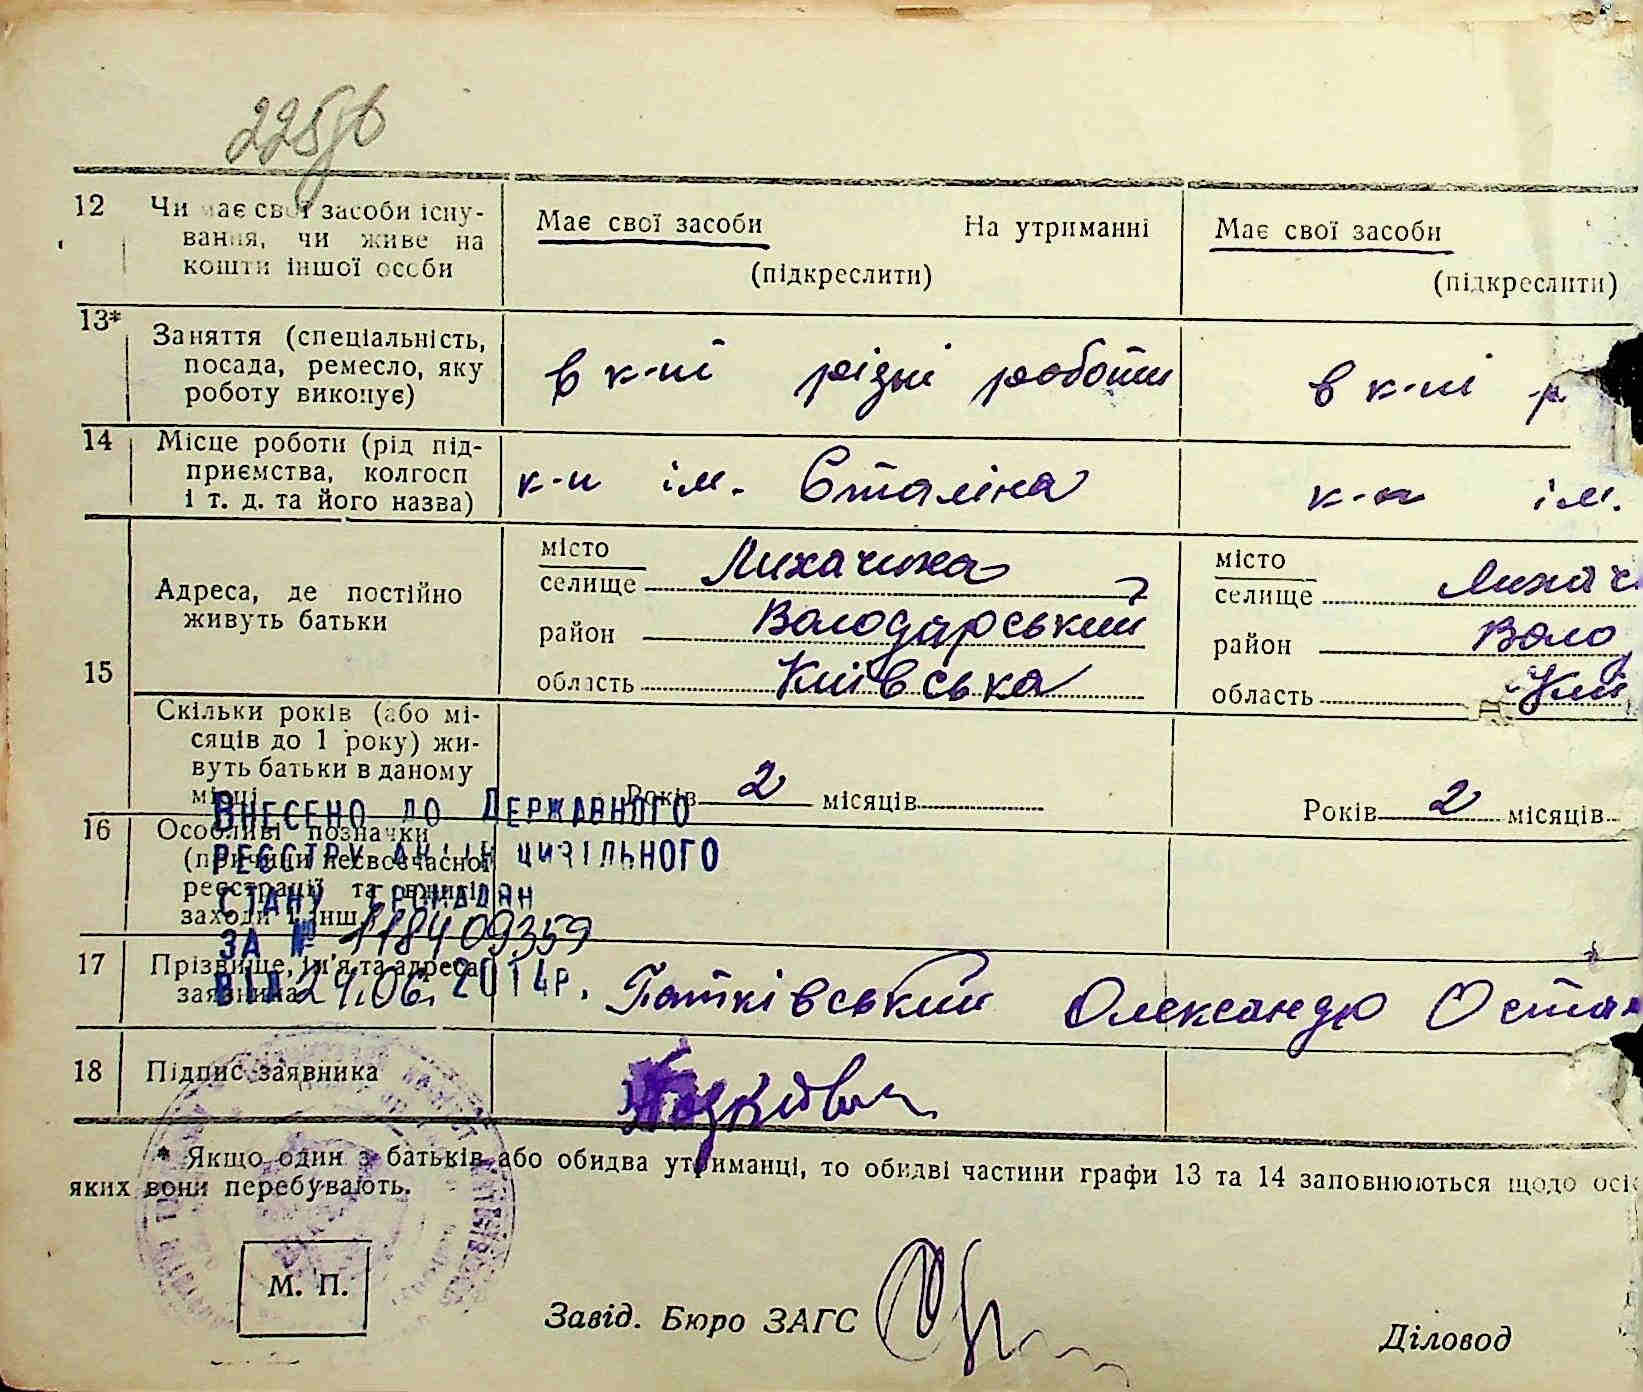 12 Чи має свої засоби існу-
вання, чи живе на
кошти іншої особи
Має свої засоби На утриманні
(підкреслити)
Має свої засоби
(підкреслити)
13*
Заняття (спеціальність,
посада, ремесло, яку
роботу виконує)
в к-пі різні роботи
в к-пі р
14 Місце роботи (рід під-
приємства, колгосп
і т. д. та його назва)
к-п ім. Сталіна
к-п ім.
15
Адреса, де постійно
живуть батьки
місто
селище Лихачиха
район Володарський
область Київська
місто
селище Лихачи
район Воло
область Киї
Скільки років (або мі-
сяців до 1 року) жи-
вуть батьки в даному
місці
Років 2 місяців
Років 2 місяців
16 Особливі позначки
(причини несвоєчасної
реєстрації та вжиті
заходи і інш.)
Внесено до Державного
реєстру актів цивільного
стану громадян
за № 1118409359
від 24.06.2014р.
17 Прізвище, ім'я та адреса
заявника
Гатківський Олександр Остап
18 Підпис заявника
* Якщо один з батьків або обидва утриманці, то обидві частини графи 13 та 14 заповнюються щодо осі
яких вони перебувають.
М. П.
Завід. Бюро ЗАГС
Діловод